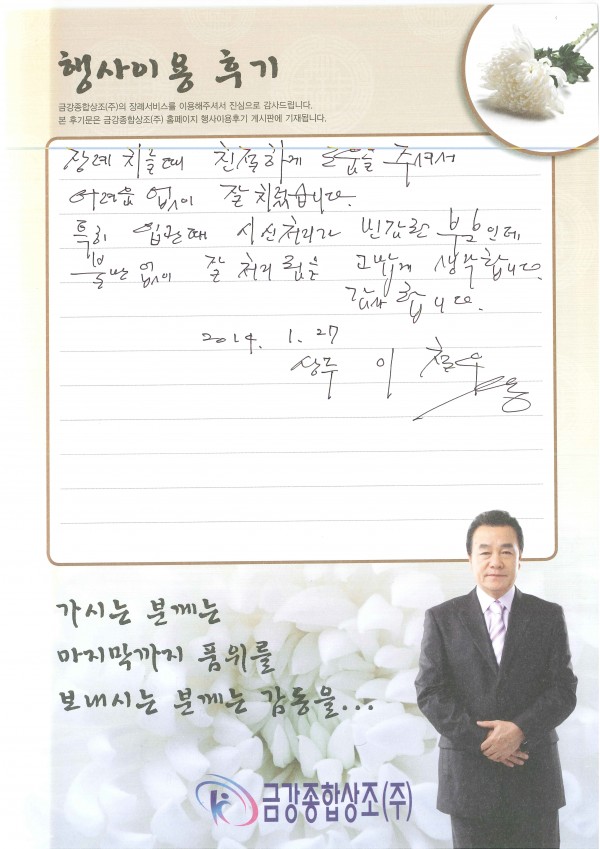 행사이용 후기
금강종합상조(주)의 장례서비스를 이용해주셔서 진심으로 감사드립니다.
본 후기문은 금강종합상조(주) 홈페이지 행사이용후기 게시판에 기재됩니다.
장례 치를때 친절하게 도움을 주셔서
어려움 없이 잘 치렀습니다.
특히 입관때 시신처리가 민감한 부분인데
불만 없이 잘 처리 됨을 고맙게 생각합니다.
감사 합니다.
2014. 1. 27
상주 이
가시는 분께는
마지막까지 품위를
보내시는 분께는 감동을...
금강종합상조(주)